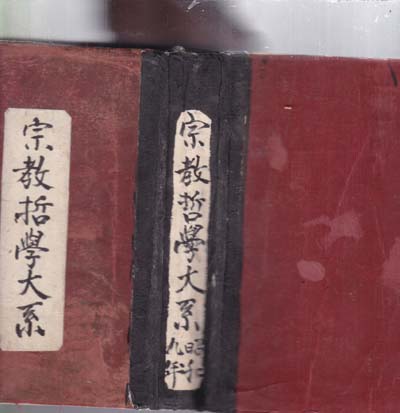 宗教哲學大系
宗教哲學大系
昭和
九年